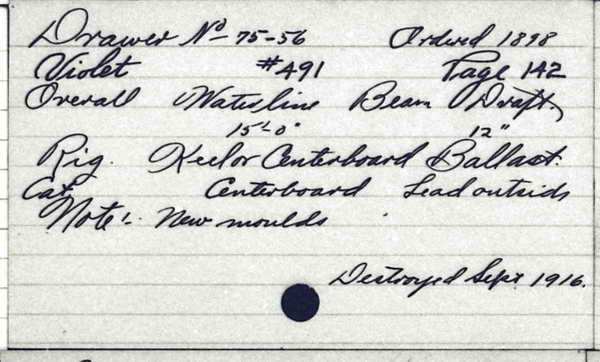 Drawer No 75-56 Ordered 1898
Violet #491 Page 142
Overall Waterline Beam Draft
15'-0" 12"
Rig. Keel or Centerboard Ballast.
Cat Centerboard Lead outside
Note:- New moulds
Destroyed Sept 1916.